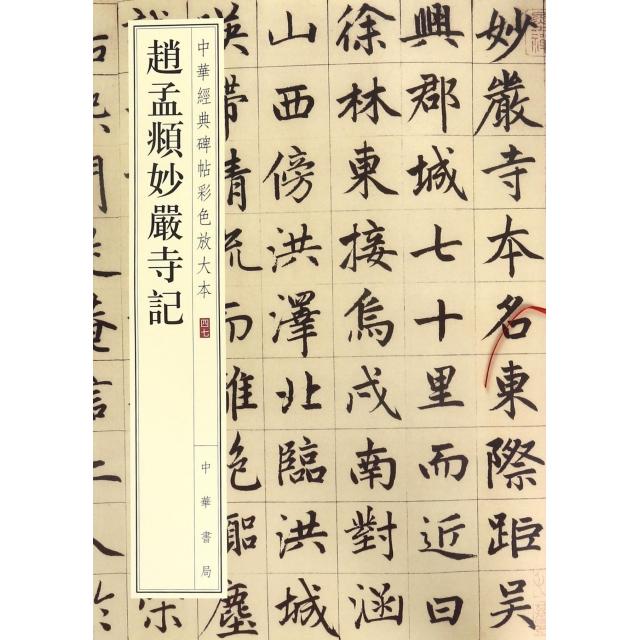 妙嚴寺本名東際距吳
興郡城七十里而近曰
徐林東接烏戍南對涵
山西傍洪澤北臨洪城
帶清流而塵
中華經典碑帖彩色放大本
四七
中華書局
趙孟頫妙嚴寺記